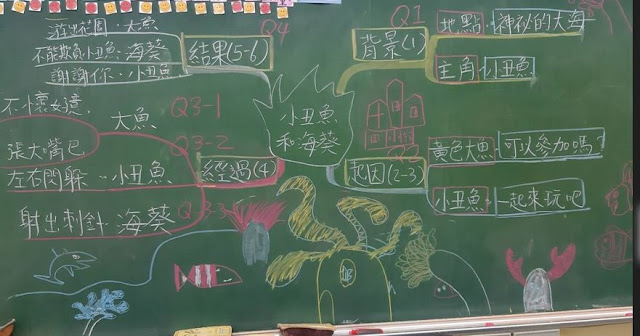 小丑魚
和海葵
Q1
背景(1)
地點 神祕的大海
主角 小丑魚
Q2
起因(2-3)
黃色大魚 可以參加嗎?
小丑魚 一起來玩吧
經過(4)
Q3-1
大魚
不懷好意,
張大嘴巴
Q3-2
左右閃躲 小丑魚
Q3-3
射出刺針 海葵
Q4
結果(5-6)
逃出花園 大魚
不能欺負小丑魚 海葵
謝謝你 小丑魚